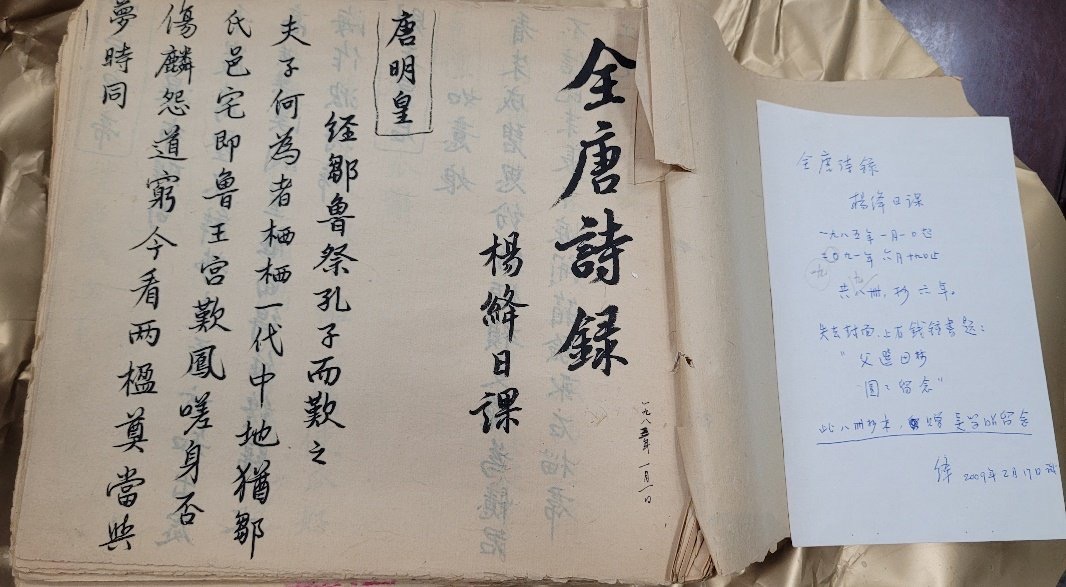 全唐詩録
楊絳日課
一九八五年一月一日
唐明皇
経鄒魯祭孔子而歎之
夫子何為者栖栖一代中地猶鄒
氏邑宅即魯王宮歎鳳嗟身否
傷麟怨道窮今看两楹奠當與
夢時同
全唐诗録
楊绛日课
一九八五年一月一日起
九一年六月十九日止
共八册,抄六年。
失去封面,上有钱锺書题:
"父選母抄
圆圆留念"
此八册抄本,赠吴学昭留念
绛 2009年2月17日